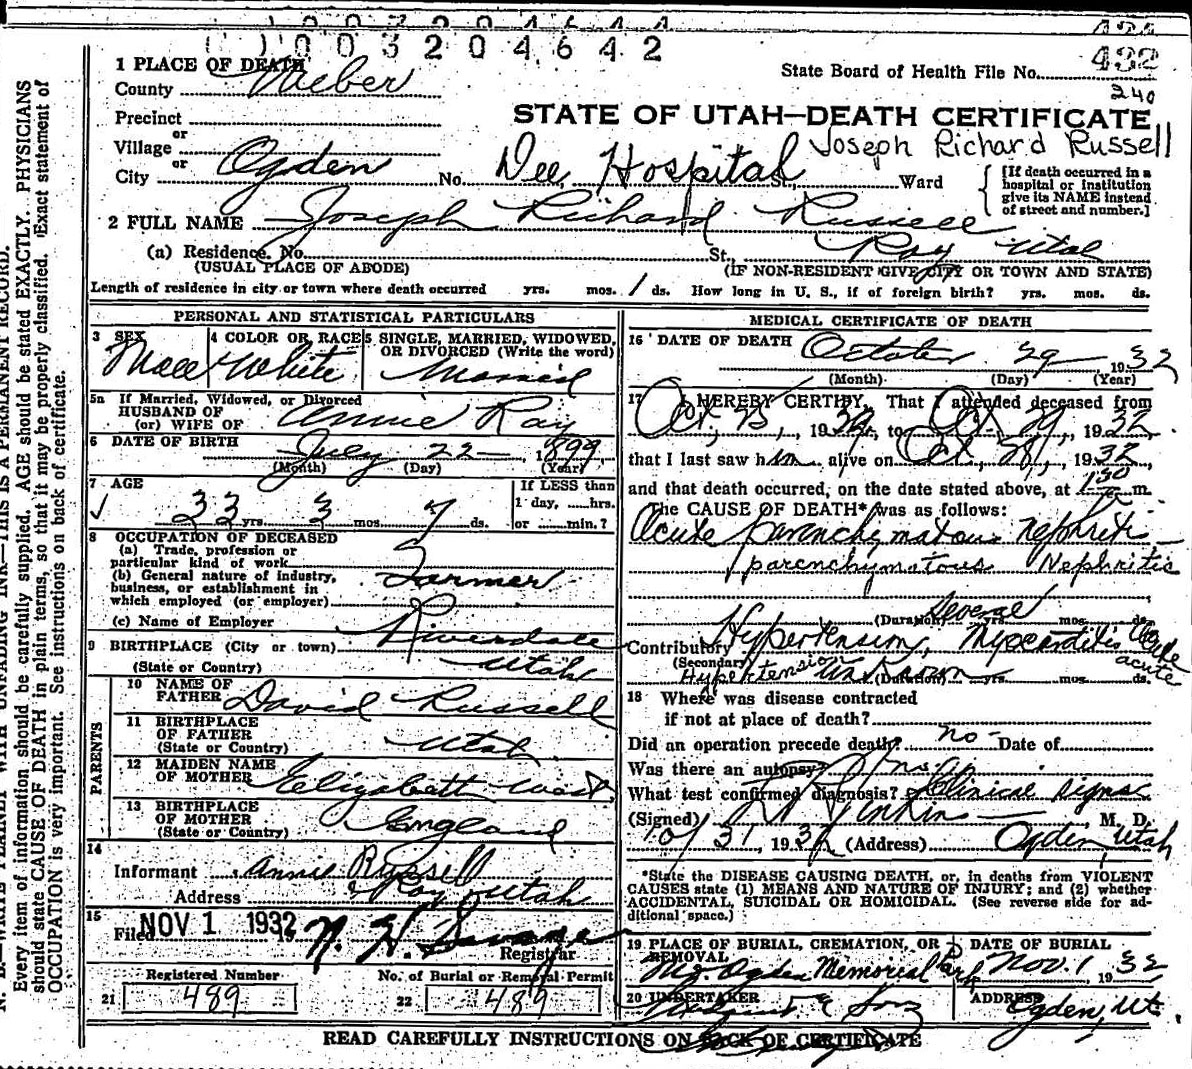 1003204642
432
1 PLACE OF DEATH
County Weber
State Board of Health File No.
240
Precinct
STATE OF UTAH—DEATH CERTIFICATE
or
Village
Joseph Richard Russell
or
City Ogden No. Dee Hospital St., Ward
[If death occurred in a hospital or institution give its NAME instead of street and number.]
2 FULL NAME Joseph Richard Russell
(a) Residence. No. St., Roy Utah
(USUAL PLACE OF ABODE) (IF NON-RESIDENT GIVE CITY OR TOWN AND STATE)
Length of residence in city or town where death occurred yrs. mos. 1 ds. How long in U. S., if of foreign birth? yrs. mos. ds.
PERSONAL AND STATISTICAL PARTICULARS
3 SEX Male
4 COLOR OR RACE White
5 SINGLE, MARRIED, WIDOWED, OR DIVORCED (Write the word) Married
5a If Married, Widowed, or Divorced
HUSBAND OF
(or) WIFE OF Annie Ray
6 DATE OF BIRTH July 22 1899
(Month) (Day) (Year)
7 AGE
33 yrs. 3 mos. 7 ds.
If LESS than
1 day, ......hrs.
or ......min.?
8 OCCUPATION OF DECEASED
(a) Trade, profession or
particular kind of work Farmer
(b) General nature of industry,
business, or establishment in
which employed (or employer)
(c) Name of Employer
9 BIRTHPLACE (City or town) Riverdale
(State or Country) Utah
PARENTS
10 NAME OF FATHER David Russell
11 BIRTHPLACE OF FATHER (State or Country) Utah
12 MAIDEN NAME OF MOTHER Elizabeth West
13 BIRTHPLACE OF MOTHER (State or Country) England
14
Informant Annie Russell
Address Roy Utah
15
Filed NOV 1 1932
Registrar
Registered Number No. of Burial or Removal Permit
21 489 22 489
MEDICAL CERTIFICATE OF DEATH
16 DATE OF DEATH October 29 1932
(Month) (Day) (Year)
17 I HEREBY CERTIFY, That I attended deceased from
Oct, 1932, to Oct. 29, 1932
that I last saw him alive on Oct, 28, 1932,
and that death occurred, on the date stated above, at 1 30 m.
The CAUSE OF DEATH* was as follows:
Acute parenchymatous nephritis
parenchymatous Nephritis
(Duration) Several yrs. mos. ds.
Contributory Hypertension, Myocarditis Acute
(Secondary) Hypertension acute
(Duration) yrs. mos. ds.
18 Where was disease contracted
if not at place of death?
Did an operation precede death? no - Date of
Was there an autopsy? no
What test confirmed diagnosis? Clinical signs
(Signed) Jenkins, M. D.
10/31, 1932 (Address) Ogden, Utah
*State the DISEASE CAUSING DEATH, or, in deaths from VIOLENT
CAUSES state (1) MEANS AND NATURE OF INJURY; and (2) whether
ACCIDENTAL, SUICIDAL OR HOMICIDAL. (See reverse side for additional space.)
19 PLACE OF BURIAL, CREMATION, OR REMOVAL
DATE OF BURIAL
Ogden Memorial Park Nov. 1 1932
20 UNDERTAKER & Sons
ADDRESS Ogden, Ut.
READ CAREFULLY INSTRUCTIONS ON BACK OF CERTIFICATE
N. B.—WRITE PLAINLY WITH UNFADING INK—THIS IS A PERMANENT RECORD.
Every item of information should be carefully supplied. AGE should be stated EXACTLY. PHYSICIANS
should state CAUSE OF DEATH in plain terms, so that it may be properly classified. Exact statement of
OCCUPATION is very important. See instructions on back of certificate.